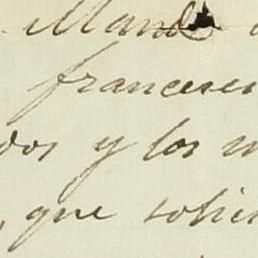 Mand
frances
dos y los m
, que solici